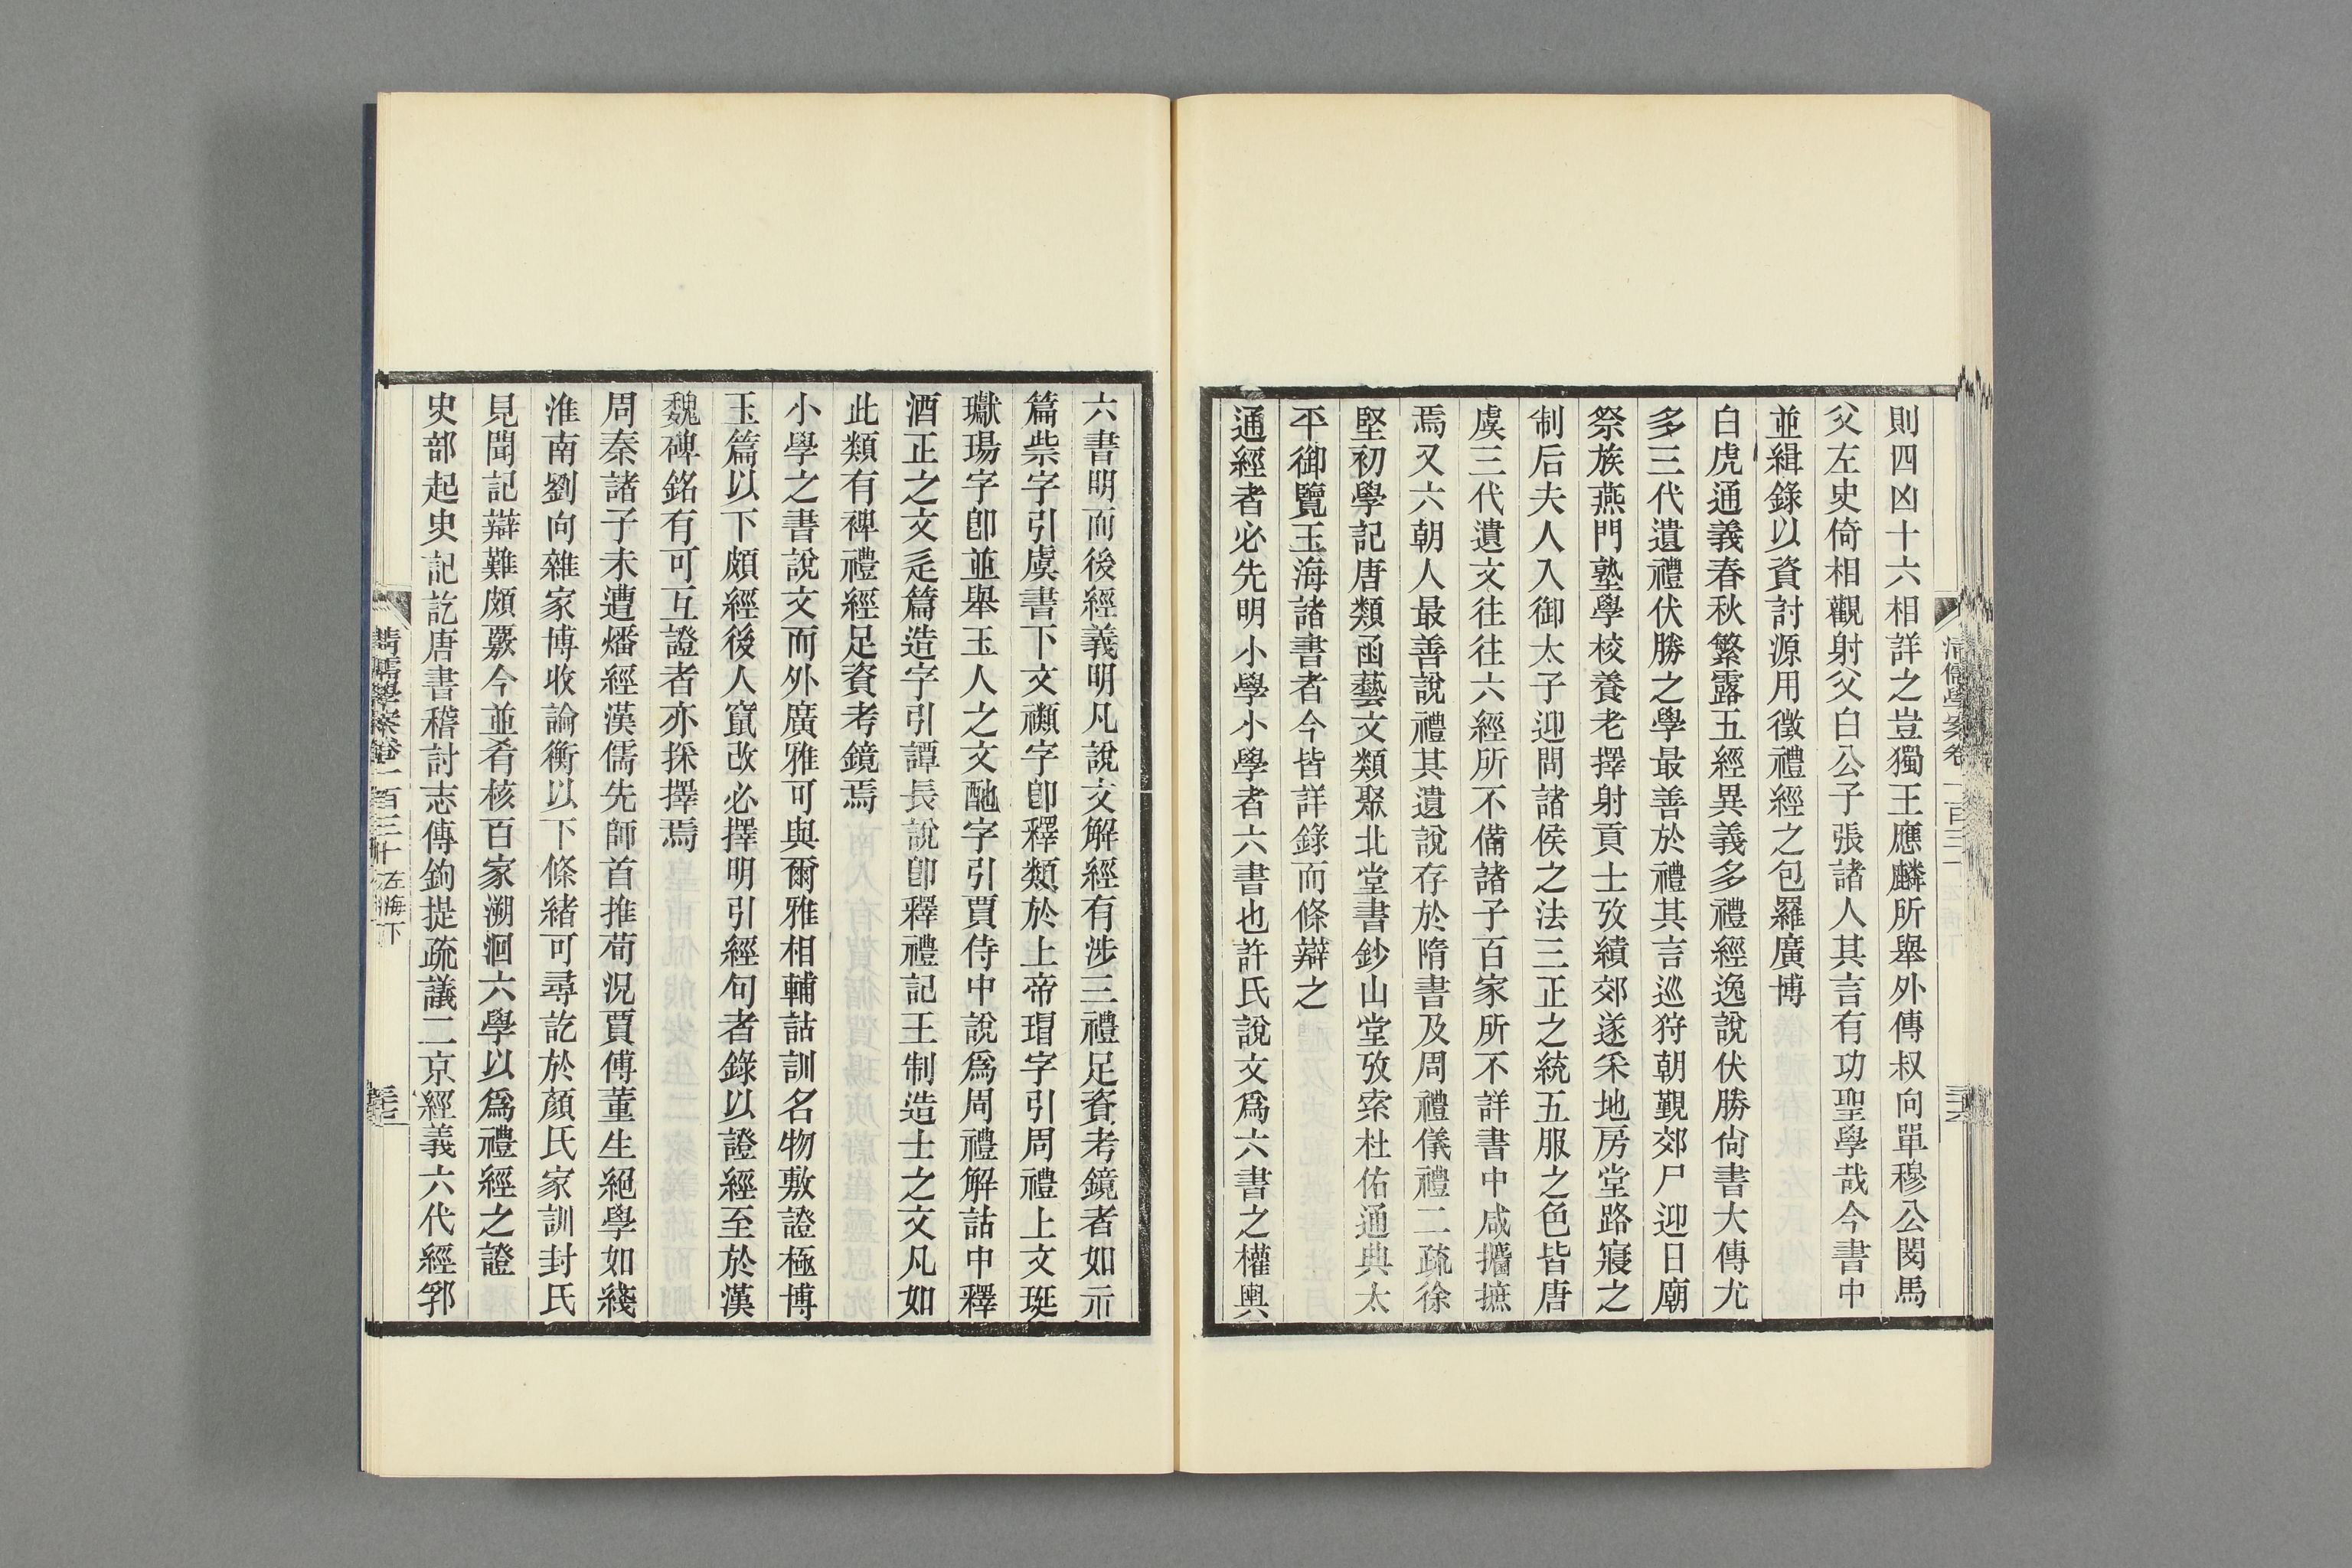 則四凶十六相詳之豈獨王應麟所舉外傳叔向單穆公閔馬
父左史倚相觀射父白公子張諸人其言有功聖學哉今書中
並緝錄以資討源用徵禮經之包羅廣博
白虎通義春秋繁露五經異義多禮經逸說伏勝尙書大傳尤
多三代遺禮伏勝之學最善於禮其言巡狩朝覲郊尸迎日廟
祭族燕門塾學校養老擇射貢士攷績郊遂釆地房堂路寢之
制后夫人入御太子迎問諸侯之法三正之統五服之色皆唐
虞三代遺文往往六經所不備諸子百家所不詳書中咸擩摭
焉又六朝人最善說禮其遺說存於隋書及周禮儀禮二疏徐
堅初學記唐類函藝文類聚北堂書鈔山堂攷索杜佑通典太
平御覽玉海諸書者今皆詳錄而條辯之
通經者必先明小學小學者六書也許氏說文爲六書之權輿
六書明而後經義明凡說文解經有涉三禮足資考鏡者如示
篇祡字引虞書下文禷字卽釋類於上帝瑁字引周禮上文珽
瓛瑒字卽並舉玉人之文酏字引賈侍中說爲周禮解詁中釋
酒正之文辵篇造字引譚長說卽釋禮記王制造士之文凡如
此類有裨禮經足資考鏡焉
小學之書說文而外廣雅可與爾雅相輔詁訓名物敷證極博
玉篇以下頗經後人竄改必擇明引經句者錄以證經至於漢
魏碑銘有可互證者亦採擇焉
周秦諸子未遭燔經漢儒先師首推荀況賈傅董生絕學如綫
淮南劉向雜家博收論衡以下條緒可尋訖於顏氏家訓封氏
見聞記辯難頗覈今並肴核百家溯洄六學以爲禮經之證
史部起史記訖唐書稽討志傳鉤提疏議二京經義六代經郛
清儒學案卷一百三十 左海下
三十七